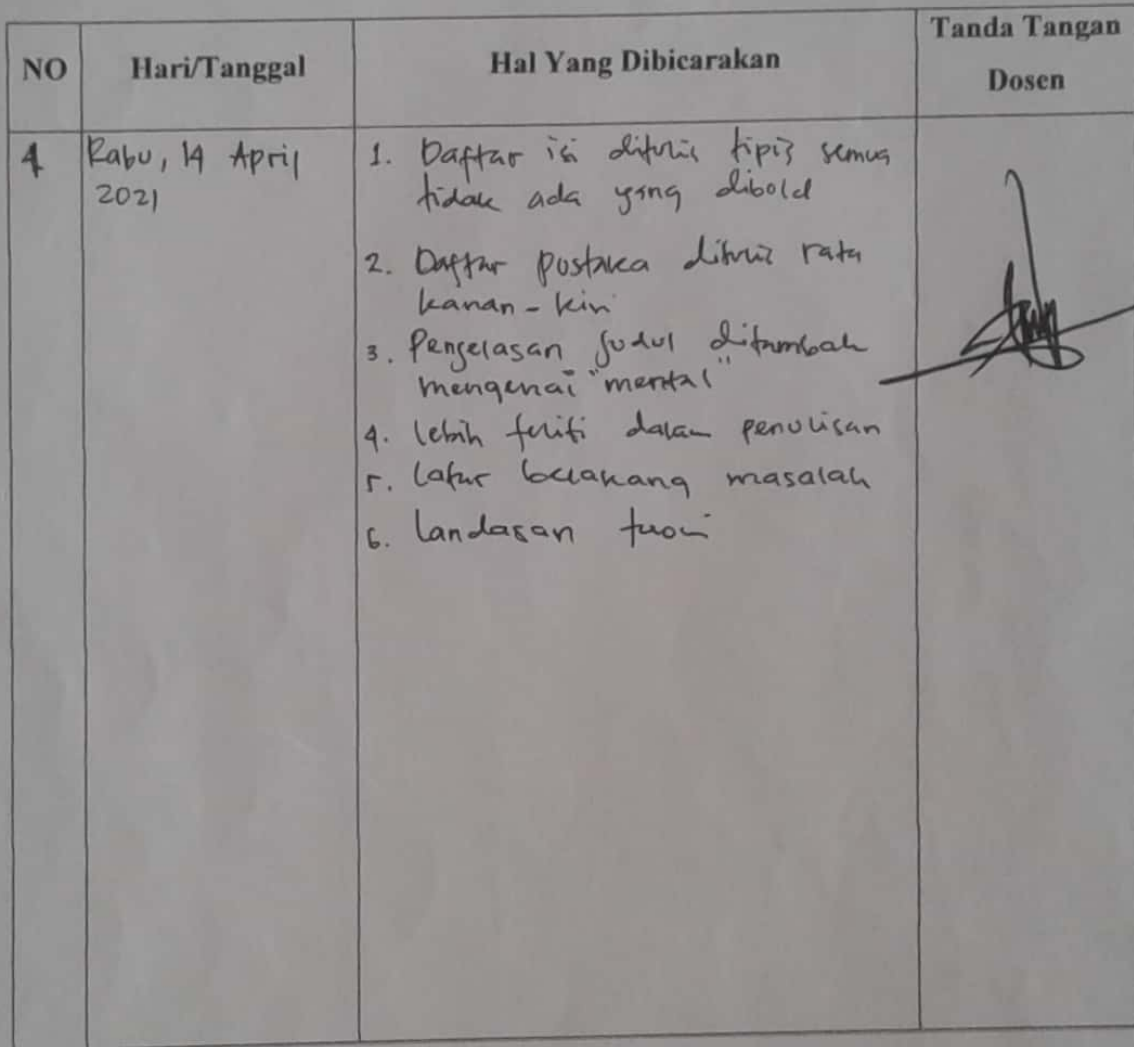 NO
Hari/Tanggal
Hal Yang Dibicarakan
Tanda Tangan
Dosen
4
Rabu, 14 April
2021
1. Daftar isi ditulis tipis semua
tidak ada yang dibold
2. Daftar pustaka ditulis rata
kanan - kiri
3. Penjelasan judul ditambah
mengenai "mental"
4. lebih teliti dalam penulisan
5. latar belakang masalah
6. landasan teori